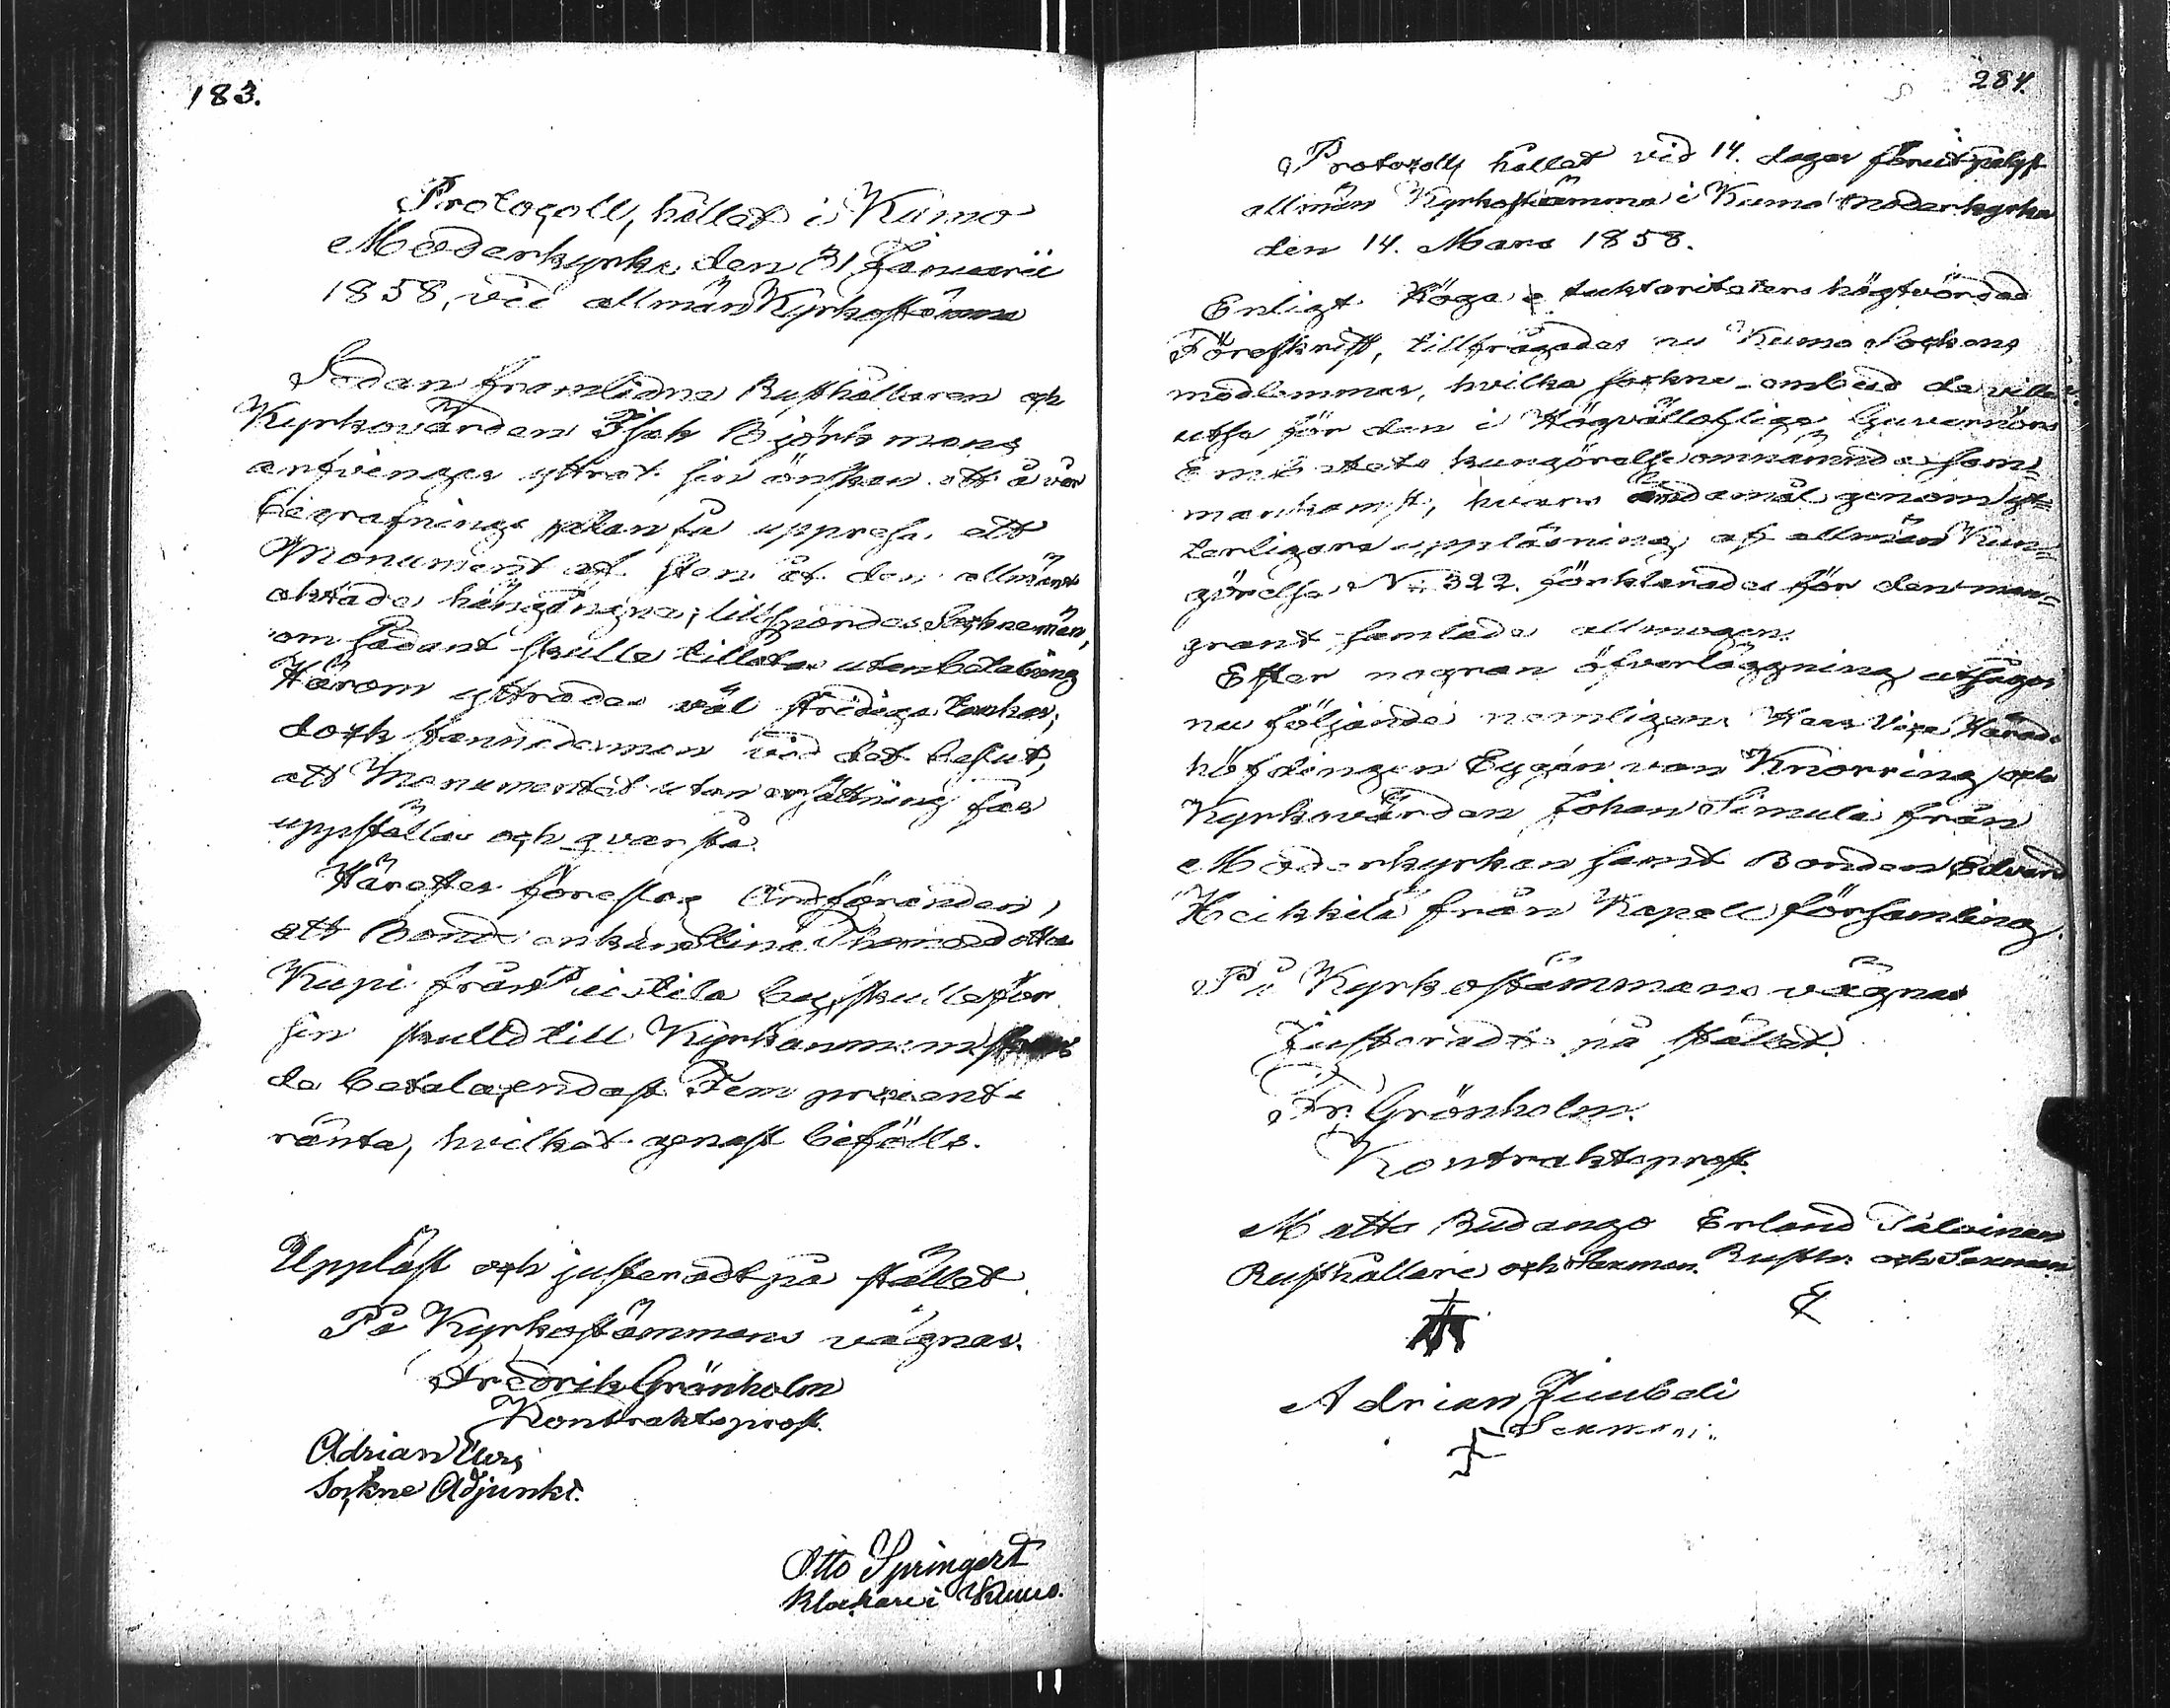 183.
Protocoll, hållet i Kumo
Moderkyrka den 31 Januarii
1858, vid allmän Kyrkostämma
Sedan framlidne Rusthållaren och
Kyrkovärden Isak Björkmans
arfvingar yttrat sin önskan att å vår
begrafnings plan få uppresa ett
Monument af sten åt den allmänt
aktade hängångna; tillspordes Socknemän,
om sådant skulle tillåtas utan betalning
Härom yttrades väl stridiga tankar;
dock stannade man vid det beslut,
att Monumentet utan ersättning får
uppställas och qvarstå.
Härefter föreslog Ordföranden,
att Bonde enkan Stina Thomasdotter
Kupi från Peistila by, skulle för
sin skuld till Kyrkan
de betala endast Fem procents
ränta, hvilket genast bifölls.
Uppläst och justeradt på stället.
På Kyrkostämmans vägnar.
Fredrik Grönholm
Kontraktsprost.
Adrian
Sockne Adjunkt.
Otto Springert
Klockare i Kumo.
284.
Protocoll hållet vid 14. dagar förut pålyst
allmän Kyrkostämma i Kumo Moderkyrka
den 14. Mars 1858.
Enligt Höga auktoritetens högtvördad
Föreskrift, tillfrågades nu Kumo Sockens
medlemmar, hvilka sockne-ombud de ville
utse för den i Högvällofliga Guvernörs
Embetets kungörelse omnämnda sam-
mankomst, hvars ändamål genom yt-
terligare uppläsning af allmän Kun-
görelse N: 322. förklarades för den man-
grant samlade allmogen.
Efter nogran öfverläggning utsågos
nu följande nemligen Herr Vice Härads
höfdingen Eugén von Knorring och
Kyrkovärden Johan Simula från
Moderkyrkan samt Bonden Edvard
Heikkilä från Kapell församling.
På Kyrkostämmans vägnar
Justeradt på stället.
Fr. Grönholm.
Kontraktsprost.
Matts Budango Erland Taloinen
Rusthållare och Sexman. Rusth. och Sexman
Adrian Juubeli
Sexman.